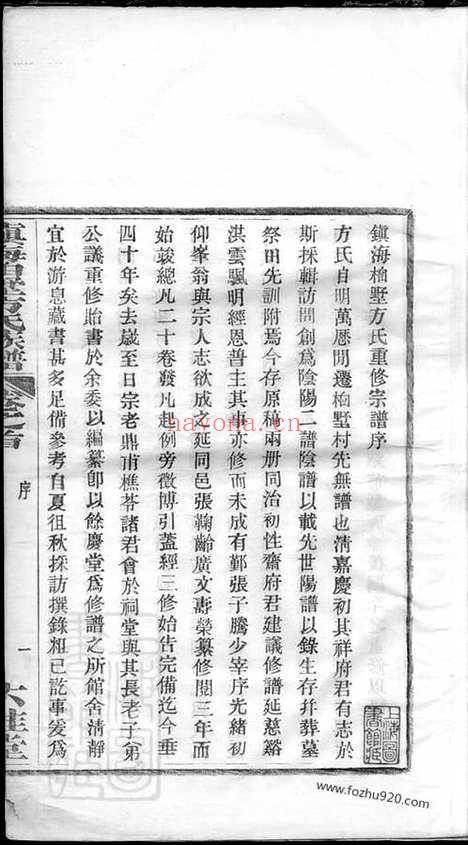 鎮海柏墅方氏重修宗譜序
方氏自明萬厯閒遷柏墅村先無譜也淸嘉慶初其祥府君有志於
斯採輯訪問創爲陰陽二譜陰譜以載先世陽譜以錄生存幷葬墓
祭田先訓附焉今存原稿兩册同治初性齋府君建議修譜延慈谿
洪雲颿明經恩普主其事亦修而未成有鄞張子騰少宰序光緖初
仰峯翁與宗人志欲成之延同邑張鞠齡廣文壽榮纂修閱三年而
始竣總凡二十卷發凡起例旁徵博引蓋經三修始吿完備迄今垂
四十年矣去歲至日宗老鼎甫樵苓諸君會於祠堂與其長老子弟
公議重修貽書於余委以編纂卽以餘慶堂爲修譜之所館舍淸靜
宜於游息藏書甚多足備參考自夏徂秋採訪撰錄粗已訖事爰爲
鎮海柏墅方氏族譜
卷之首
序
一
六桂堂
上海圖書館藏
nayona.cn
www.fozhu920.com